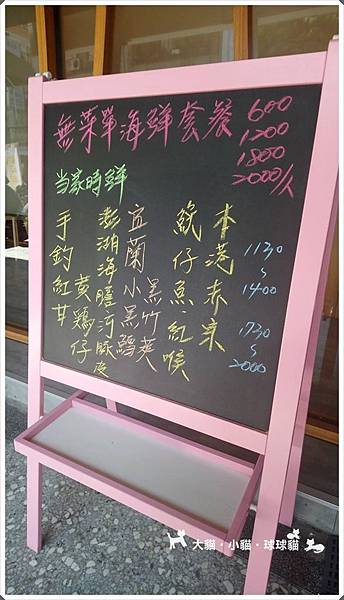 無菜單海鮮套餐 600
1200
1800
2000/人
当家時鮮
手釣紅甘
黃鷄仔
澎湖海膽河
宜蘭小黑鱈
黑竹莢
仔魚·紅喉
本港赤宗
1130
~
1400
1730
~
2000
大貓·小貓·球球貓